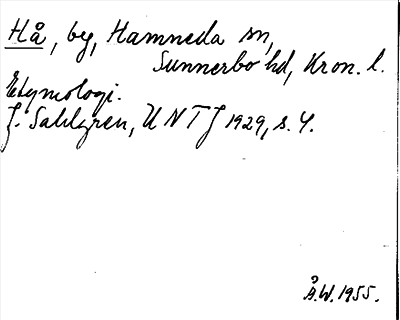 Hå, by, Hamneda sn,
Sunnerbo hd, Kron. l.
Etymologi.
J. Sahlgren, UNTJ 1929, s. 4.
Å.W. 1955.